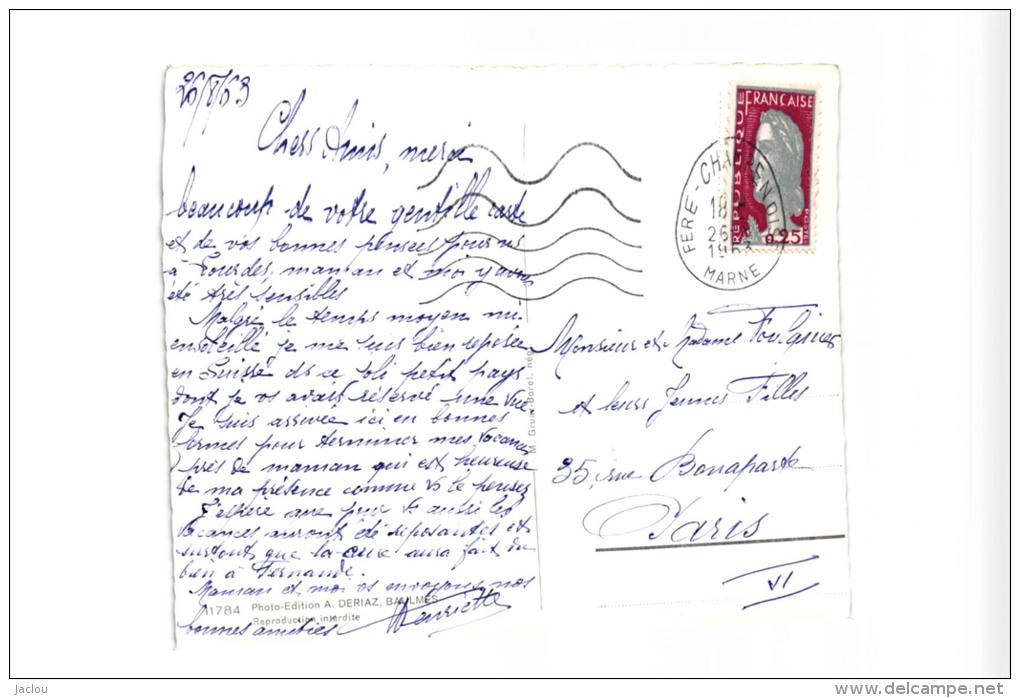 26/8/63
Chers Amis, merci
beaucoup de votre gentille carte
et de vos bonnes pensées pour ns
à Lourdes, maman et moi y avons
été très sensibles
Malgré le temps moyen mi-
ensoleillé je me suis bien reposée
en Suisse ds ce joli petit pays
dont je vs avais réservé une vue
Je suis arrivée ici en bonnes
formes pour terminer mes vacances
près de maman qui est heureuse
de ma présence comme vs le pensez
J'espère que pour vs aussi les
vacances auront été reposantes et
surtout que la cure aura fait du
bien à Fernande.
Maman et moi vs envoyons nos
bonnes amitiés Henriette
11784 Photo-Edition A. DERIAZ, BAULMES
Reproduction interdite
M. Gruaz-Borel, nég
REPUBLIQUE FRANÇAISE
POSTES
0,25
FERE-CHAMPENOISE
18
26
1963
MARNE
Monsieur et Madame
et leurs Jeunes Filles
35, rue Bonaparte
Paris
VI
jaclou
www.delcampe.net